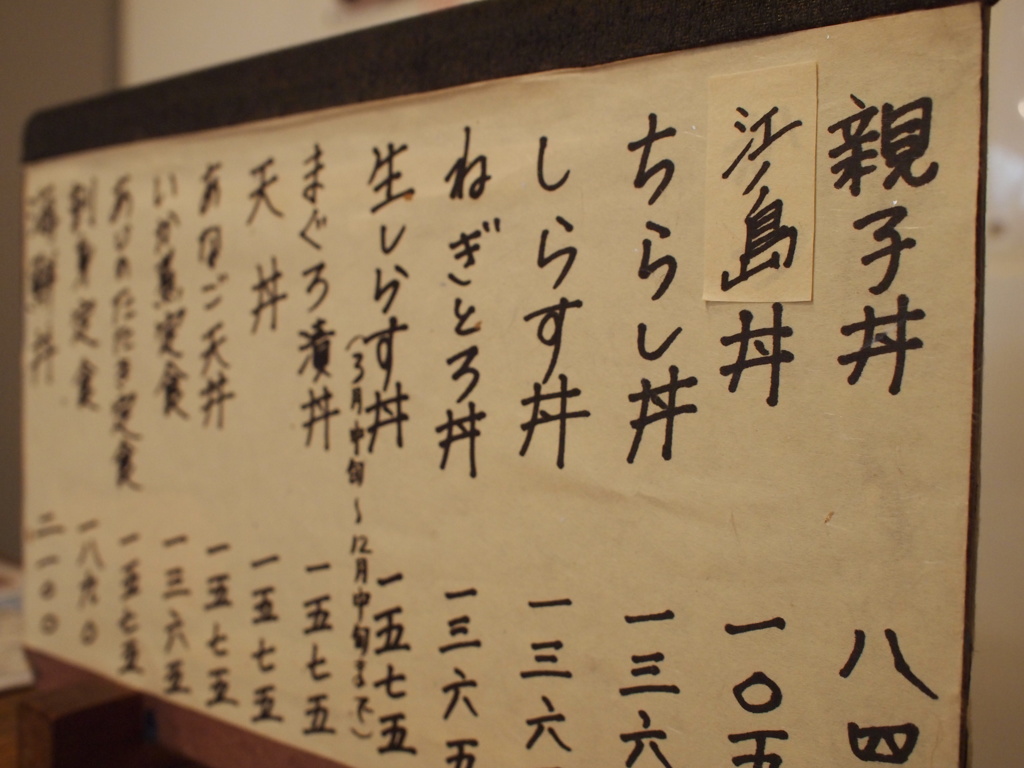 親子丼 八四
江ノ島丼 一〇五
ちらし丼 一三六
しらす丼 一三六
ねぎとろ丼 一三六五
生しらす丼 一五七五
(3月中旬〜12月中旬まで)
まぐろ漬丼 一五七五
天丼 一五七五
あなご天丼 一五七五
いか 定食 一三六五
あじのたたき定食 一五七五
刺身定食 一八六〇
海鮮丼 二一〇〇